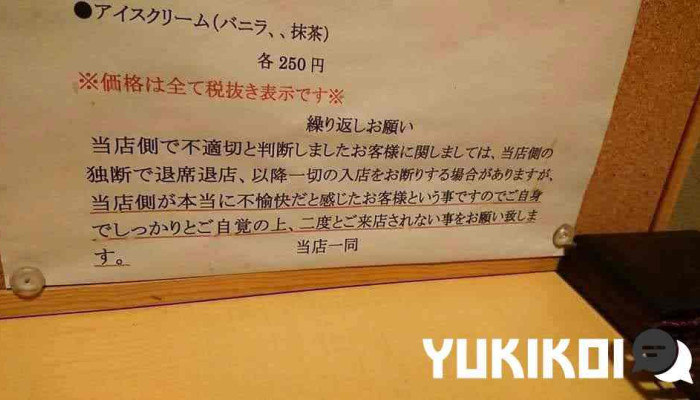 ●アイスクリーム(バニラ、、抹茶)
各250円
※価格は全て税抜き表示です※
繰り返しお願い
当店側で不適切と判断しましたお客様に関しましては、当店側の
独断で退席退店、以降一切の入店をお断りする場合がありますが、
当店側が本当に不愉快だと感じたお客様という事ですのでご自身
でしっかりとご自覚の上、二度とご来店されない事をお願い致しま
す。
当店一同
YUKIKOI